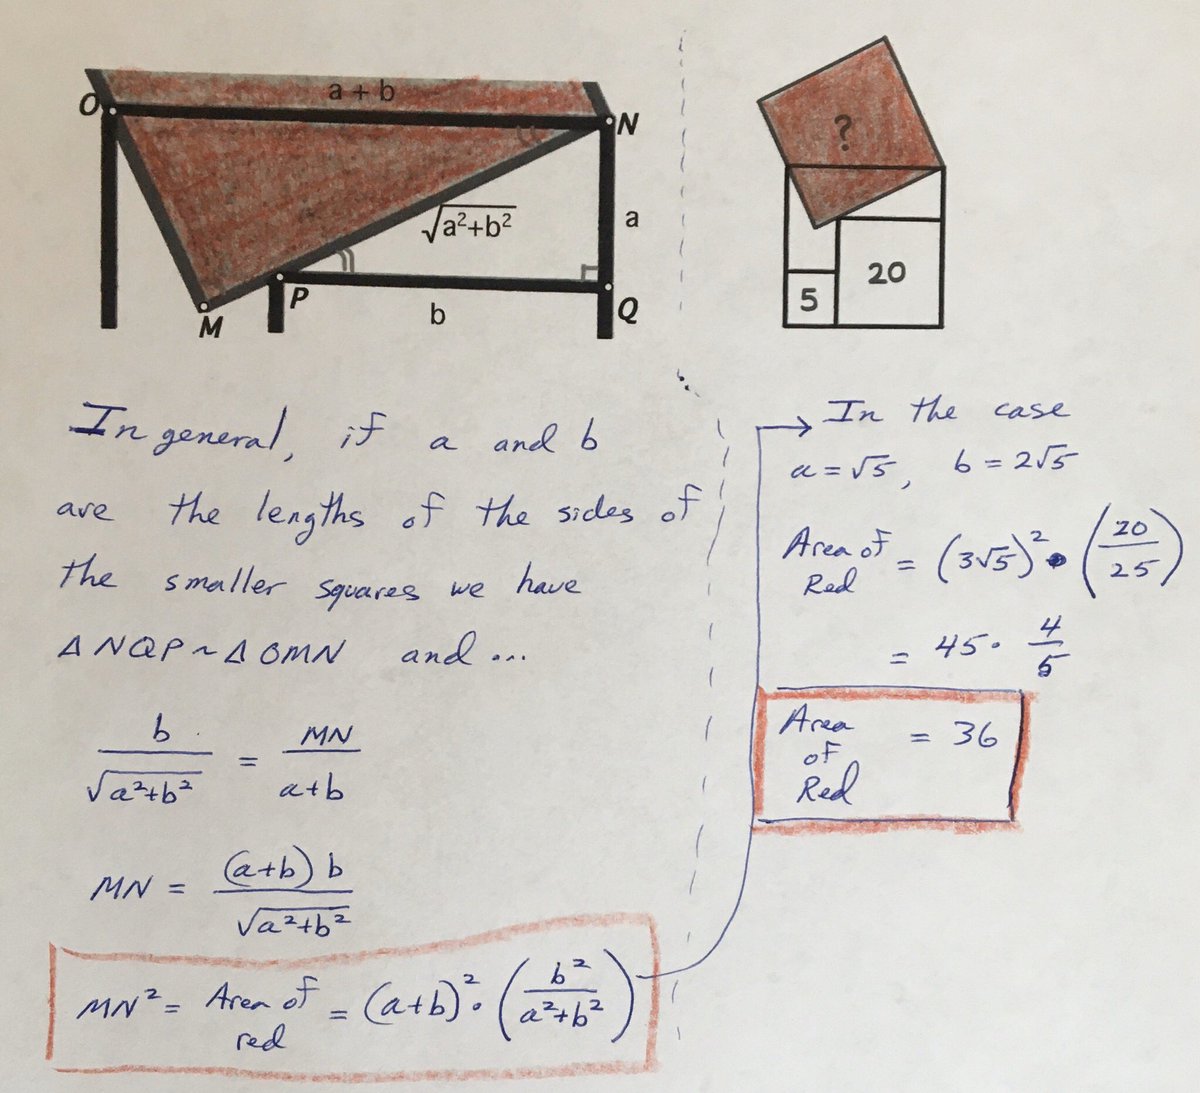 O
a + b
N
√a²+b²
a
P
b
Q
M
?
5
20
In general, if a and b
are the lengths of the sides of
the smaller squares we have
Δ NQP ~ Δ OMN and ...
b/√a²+b² = MN/a+b
MN = (a+b) b/√a²+b²
MN² = Area of red = (a+b)² · (b²/a²+b²)
In the case
a = √5, b = 2√5
Area of Red = (3√5)² · (20/25)
= 45 · 4/5
Area of Red = 36